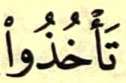 تَأْخُذُوا۟